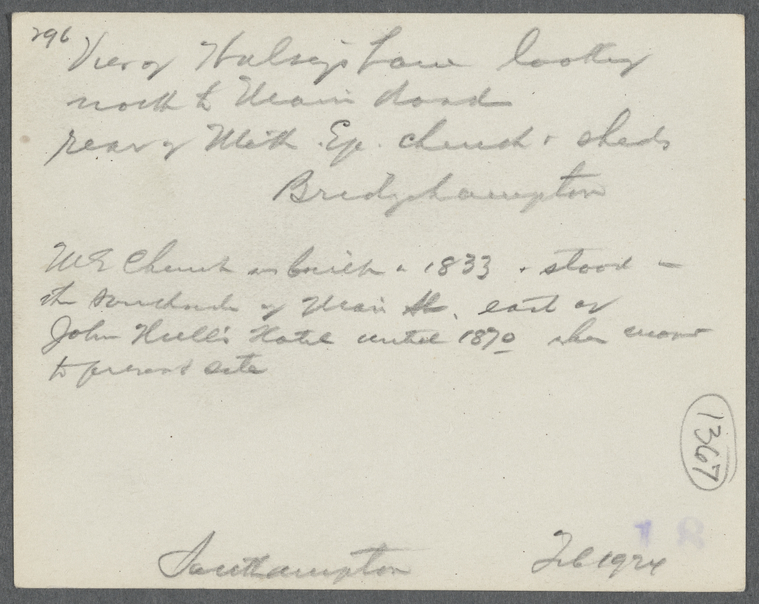 296
View of Halsey's Lane looking
north to Main Road
rear of Meth. Ep. church & sheds
Bridgehampton
M E Church was built in 1833 & stood in
the south side of Main St. east of
John Hull's Hotel until 1870 when moved
to present site
1367
18
Southampton Feb 1924